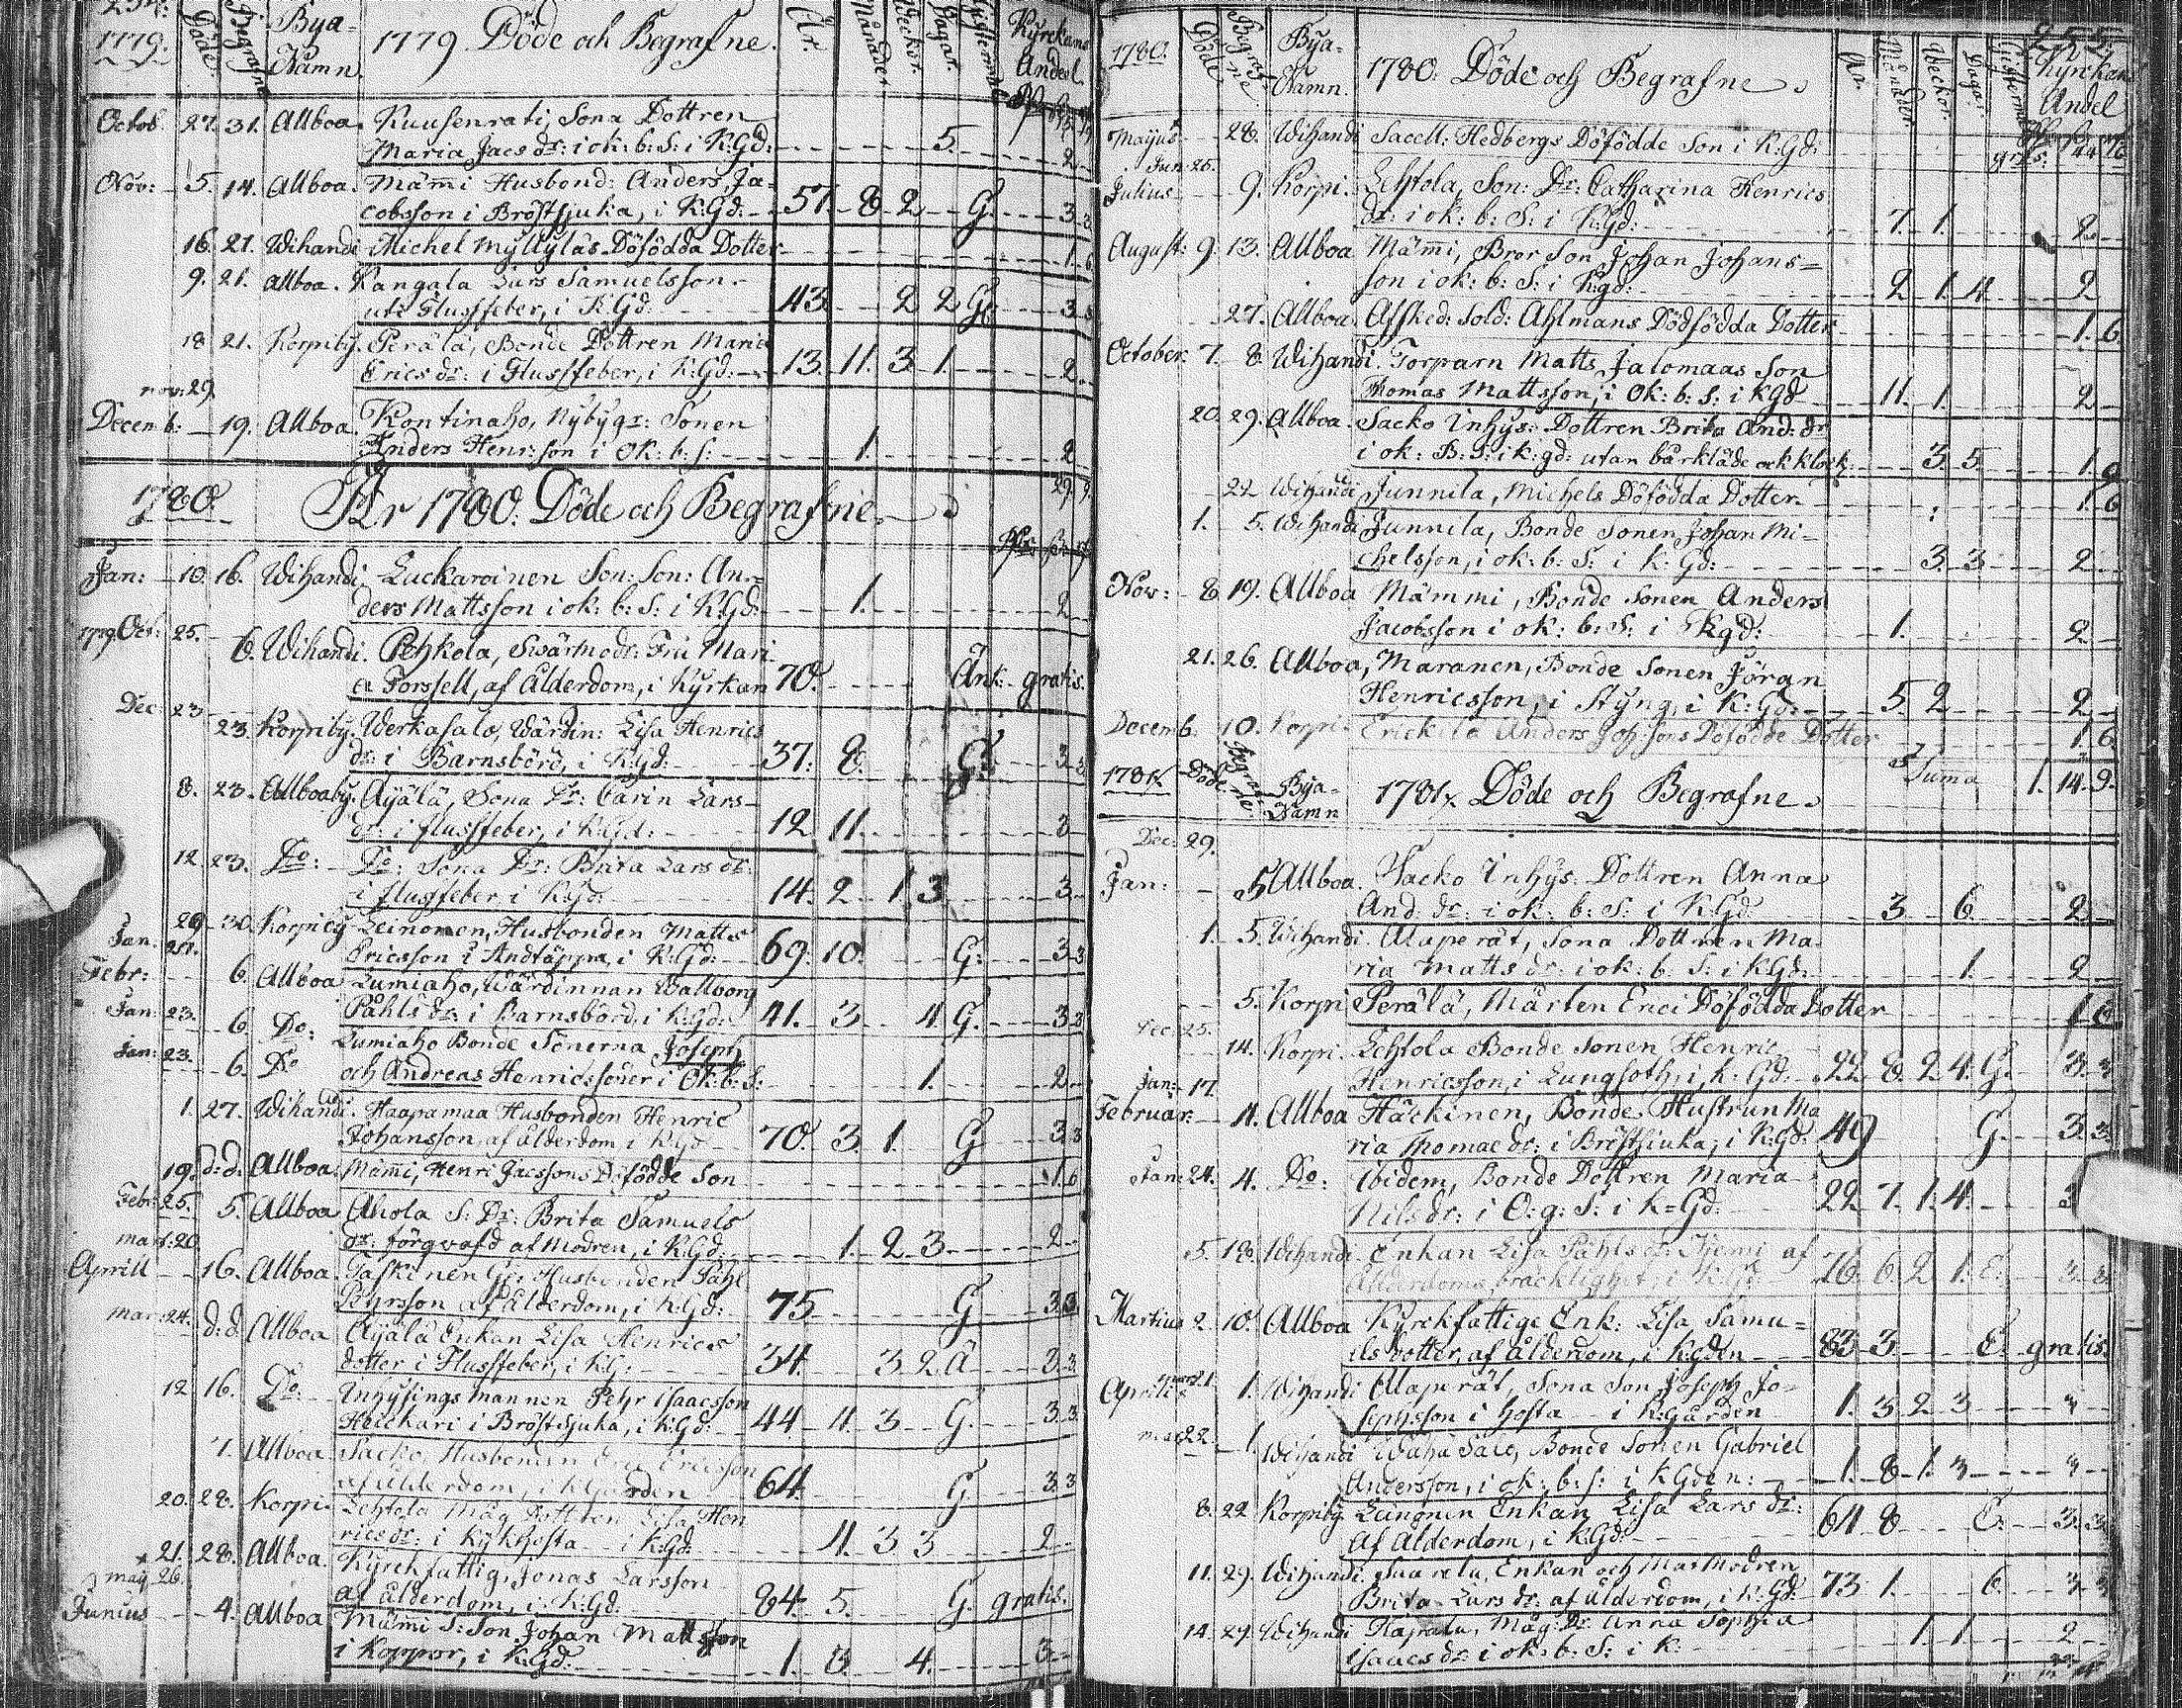 234.
1779. Döde. Begrafne Bya-Namn. 1779 Döde och Begrafne. År. Månader. Veckor. Dagar. Giftermål Kyrckans Andel.
Octob. 27. 31. Allboa. Kuusenrati, Sona Dottren
Maria Jacs dr: i ok: b: S: i K:Gd: 5. 2
Nov: 5. 14. Allboa. Mämi Husbond: Anders Ja-
cobsson i Bröstsjuka, i K:Gd: 57. 8 2 G. 3 3
16. 21. Wihandi Michel Myllyläs Döfödda Dotter 1. 6
9. 21. Allboa. Kangala Lars Samuelsson
uti Flussfeber, i K:Gd: 43 2 2 G. 3 3
18 21. Korpiby. Perälä, Bonde Dottren Maria
Erics dr: i Flussfeber, i K:Gd: 13. 11. 3 1. 2
nov: 29.
Decemb: 19. Allboa. Kontinaho, Nybygs: Sonen
Anders Henr:son i Ok: b: s: 1. 2
29. 9.
1780. År 1780. Döde och Begrafne.
Jan: 10. 16. Wihandi. Luckaroinen Son: Son: An-
ders Mattsson i ok: b: S: i K:Gd: 1. 2
1779. Oct: 25. 6. Wihandi. Pehkola, Swärmodr: Fru Mari
a Forssell, af Ålderdom, i Kyrkan 70. Änk: gratis.
Dec 23. 23. Korpiby. Werkasalo, Wärdin: Lisa Henrics
dr: i Barnsbörd, i K:Gd: 37. 8. G. 3 3
8. 23. Allboaby. Äyälä, Sona Dr: Carin Lars-
dr: i flussfeber, i K:Gd: 12 11. 3
12. 23. Do: Do: Sona Dr: Brita Lars dr:
i flussfeber i K:Gd: 14. 2 1. 3 3
29 30. Korpiby Leinonen, Husbonden Matts
Ericsson i Andtäppa, i K:Gd: 69. 10. G. 3 3
Jan: 21.
Febr: 6. Allboa Lumiaho, Wärdinnan Wallborg
Påhls dr: i Barnsbörd, i K:Gd: 41. 3 4 G. 3 3
Jan: 23. 6. Do: Lumiaho Bonde Sönerna Joseph
Jan: 23. 6. Do och Andreas Henricssöner i Ok: b: S: 1. 2
1. 27. Wihandi. Haapamaa Husbonden Henric
Johansson, af ålderdom, i K:Gd 70. 3. 1. G 3 3
19. d:d. Allboa. Mämi, Henri Jacssons Döfödde Son 1. 6
Febr: 25. 5. Allboa Ahola S: Dr: Brita Samuels
dr: förqvafd af Modren, i K:Gd: 1. 2 3 2
mart: 20.
Aprill 16. Allboa. Taskinen Husbonden Påhl
Pehrsson af ålderdom, i K:Gd: 75 G 3 3
mar: 24. d:d. Allboa Äyälä Enkan Lisa Henrics
dotter i Flussfeber, i K:G: 34. 3 2 3 3
12 16. Do: Inhysings mannen Pehr Isaacsson
i Bröstsjuka, i K:Gd: 44 11 3 G. 3 3
1. Allboa Sacko, Husbonden Eric Ericsson
af ålderdom, i K:Gården 64. G 3 3
20. 28. Korpi Lehtola Måg Dottren Lisa Hen
rics dr: i Kykhosta i K:Gd: 4. 3 3 2
21. 28. Allboa. Kyrckfattig, Jonas Larsson
af ålderdom, i K:Gd: 84. 5. G. gratis.
maij 26.
Junius 4. Allboa Mämi S: Son Johan Mattsson
i Koppor, i K:Gd: 1. 8. 4. 3
255.
1780. Döde Begrafne Bya-Namn. 1780. Döde och Begrafne. År. Månader. Veckor. Dagar. Gifterm. Kyrckans Andel
Maijus 28. Wihandi Sacell: Hedbergs Döfödde Son i K:Gd: gratis.
Jun: 26.
Julius 9. Korpi. Lehtola, Son: Dr: Catharina Henrics
dr: i ok: b: S: i K:Gd: 7. 1. 2
August: 9. 13. Allboa Mämi, Bror Son Johan Johans=
son i ok: b: S: i K:gd: 2 1. 4. 2
27. Allboa. Afsked: Sold: Ahlmans Dödfödda Dotter 1. 6
October: 7. 8 Wihandi. Torparn Matts Jalomaas Son
Thomas Mattsson, i Ok: b: S: i Kgd 11. 1. 2
20. 29. Allboa. Sacko Inhys: Dottren Brita And: dr
i ok: B: S: i k:gd: utan bårkläde och klock: 3 5 1.
22 Wihandi Junnila, Michels Döfödda Dotter 1. 6
1. 5. Wihandi Junnila, Bonde Sonen Johan Mi-
chelsson, i ok: b: S: i K:Gd: 3 3 2
Nov: 8 19. Allboa Mämmi, Bonde Sonen Anders
Jacobsson i ok: b: S: i Kgd: 1. 2
21. 26. Allboa, Maranen, Bonde Sonen Jöran
Henricsson, i Styng, i K:Gd: 5. 2 2
Decemb. 10. Korpi Erickilä Anders Joh:sons Döfödde Dotter 1. 6
Suma 1. 14. 9.
1781. Döde Begrafne Bya-Namn 1781. Döde och Begrafne.
Dec: 29.
Jan: 5 Allboa. Sacko Inhys: Dottren Anna
And: dr: i ok: b: S: i K:Gd: 3 6 2
1. 5. Wihandi. Alaperät, Sona Dottren Ma-
ria Matts dr: i ok: b: S: i K:Gd: 1. 2
5. Korpi Perälä, Mårten Erici Döfödda Dotter 1 6
Dec: 25. 14. Korpi. Lehtola Bonde Sonen Henric
Henricsson, i Lungsoth, i K:Gd: 22 8. 2 4. G. 3. 3
Jan: 17.
Februar: 4. Allboa Häckinen, Bonde Hustrun Ma
ria Thomae dr: i Bröstsjuka, i K:Gd: 49 G. 3. 3
Jan: 24. 4. Do: Ibidem, Bonde Dottren Maria
Nils dr: i O:g: S: i K=Gd: 22 7. 1. 4. 3
5. 18. Wihandi Enkan Lisa Påhls dr af
Ålderdoms bräcklighet, i K:Gd: 76. 6. 2 1. E: 3. 3
Martius 2. 10. Allboa Kyrckfattige Enk: Lisa Samu=
els dotter, af Ålderdom, i K:Gden 83 3. E. gratis.
Aprilis 1. Wihandi Alaperät, Sona Son Joseph Jo-
sephsson i hosta i K:Gården 1. 3 2 3 3
mar 22. 1 Wihandi Bonde Sonen Gabriel
Andersson, i ok: b: s: i K:Gden: 1. 8 1. 3 3
8. 22 Korpiby. Leinonen Enkan Lisa Lars dr:
Af Ålderdom, i K:Gd: 64 8 E. 3. 3
11. 29. Wihandi Enkan och Mormodren
Brita Lars dr: af Ålderdom, i K:Gd: 73 1. 3 3
14. 29. Wihandi Måg: Dr: Anna Sophia
Isaacs dr: i ok: b: S: i K: 1. 1 2